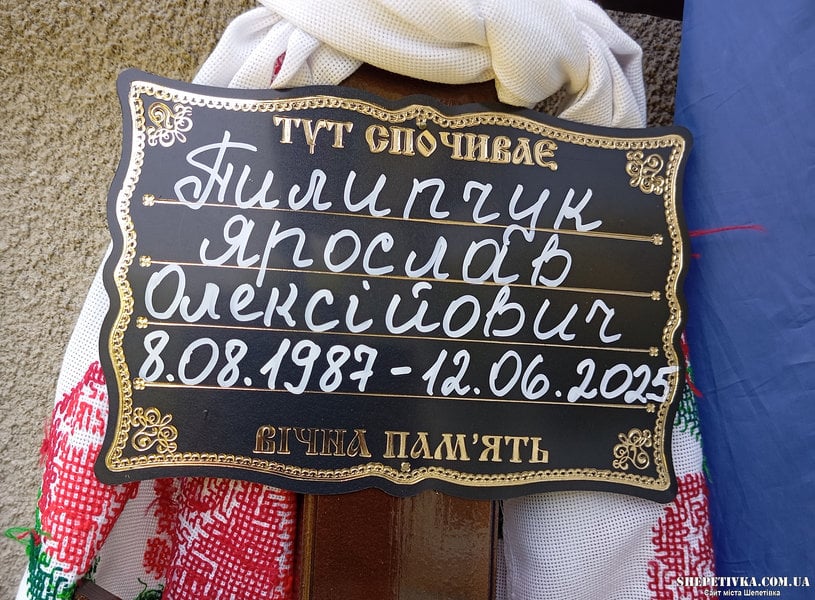 ТУТ СПОЧИВАЄ
Пилипчук
Ярослав
Олексійович
8.08.1987 - 12.06.2025
ВІЧНА ПАМ'ЯТЬ
SHEPETIVKA.COM.UA
Сайт міста Шепетівка